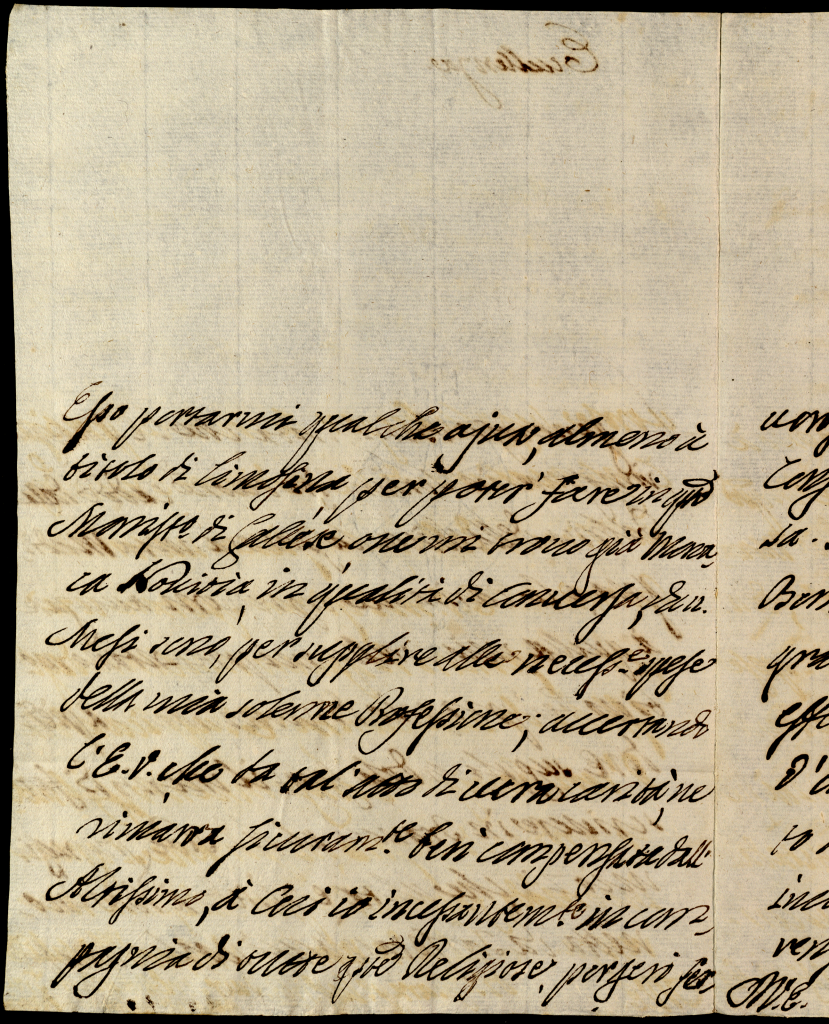 Esso portarmi qualche ajuto, almeno à
titolo di limosina per poter fare in questo
Monist.o di Gallese ove mi trovo già Mona,
ca Novizia in qualità di Conversa, da
Mesi sono, per supplire alle necess.e spese
della mia solenne Professione; accertando
l'E.V. che da tal' atto di vera carità, ne
rimarrà sicuram.te ben compensata dall'
Altissimo, à Cui io incessantem.te in com,
pagnia di tutte queste Religiose, porgerò fer,
ven
M.E.